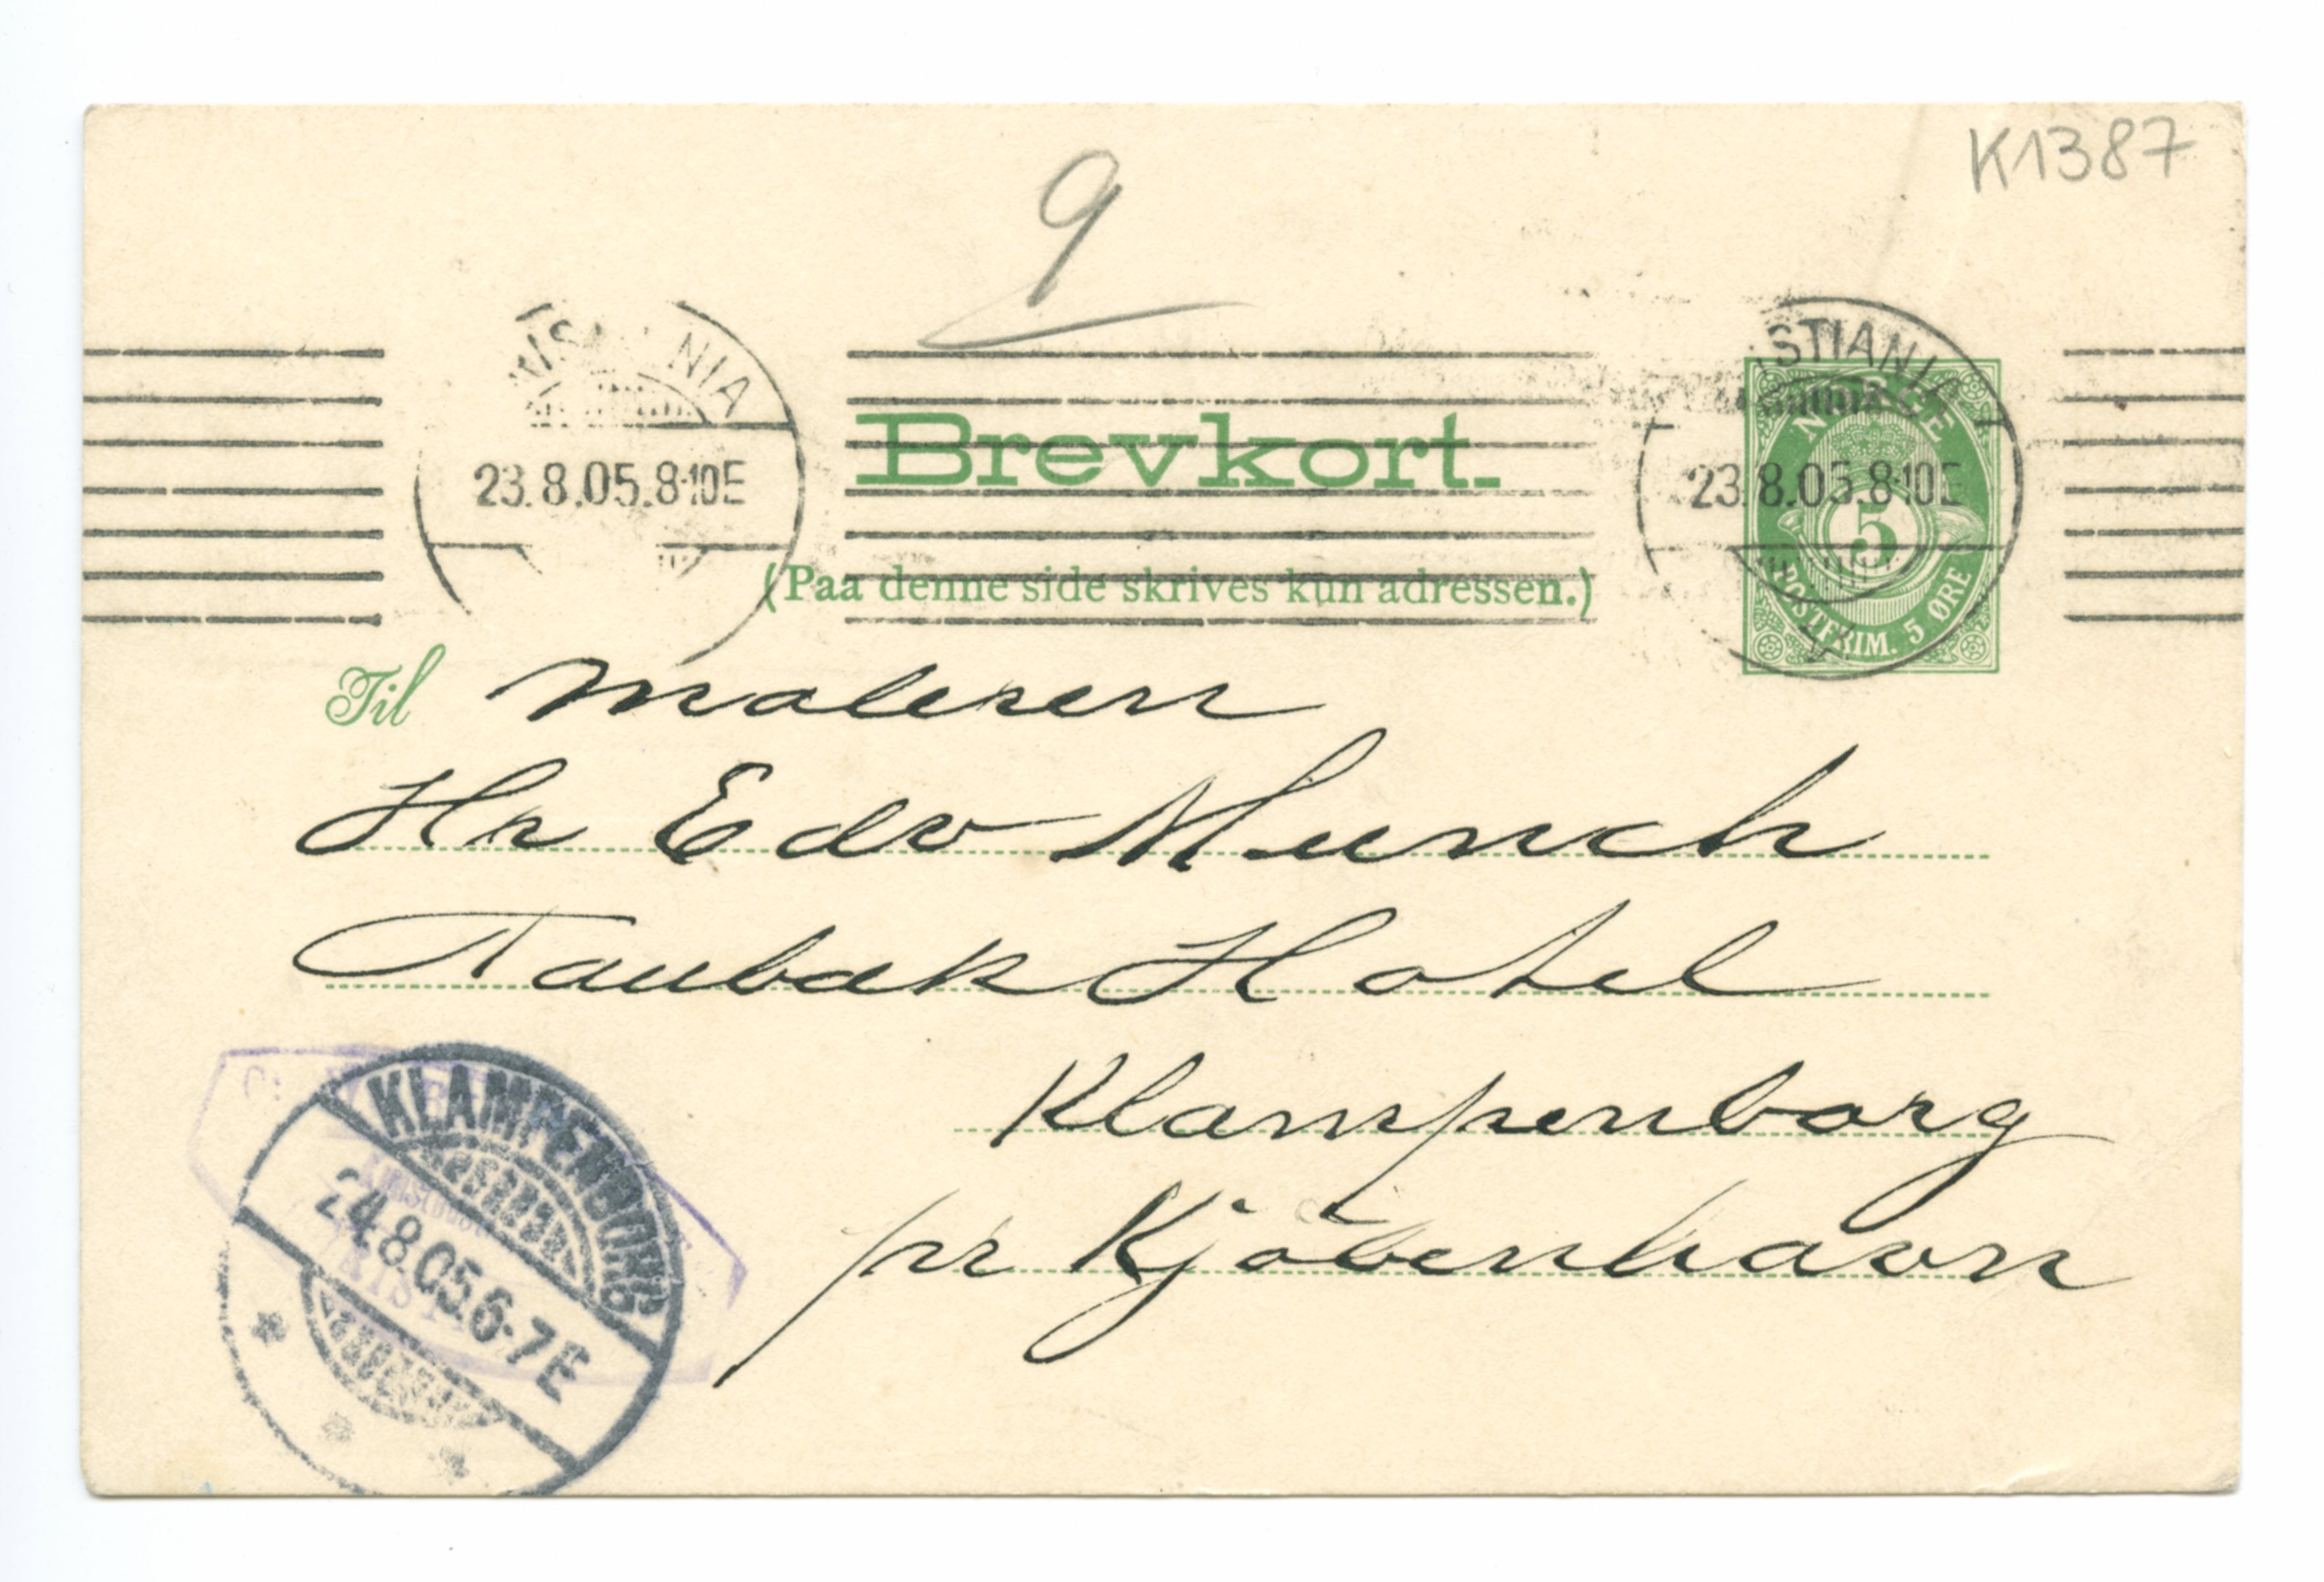 K1387
9
NIA
23.8.05.8-10E
Brevkort.
(Paa denne side skrives kun adressen.)
STIANIA
23.8.05.8-10E
NORGE
5
POSTFRIM. 5 ØRE
Til Maleren
Hr Edv Munch
Taubæk Hotel
Klampenborg
pr Kjöbenhavn
KLAMPENBORG
24.8.05.6-7E